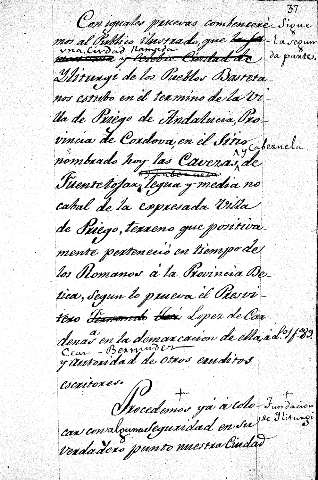 37
Con iguales pruevas combencere- Sigue
mos al Publico ilustrado, que la segun
una Ciudad Ranpida da parte.
y celebre Ciudad de
Yliturgi de los Pueblos Basteta
nos estubo en el termino de la Vi
lla de Priego de Andalucia, Pro-
vincia de Cordova, en el Sitio
nombrado hoy las Caveras, y Cabernela
de
Fuentetojar, legua y media no
cabal de la expresada Villa
de Priego, terreno que positiva-
mente perteneció en tiempo de
los Romanos á la Provincia Be-
tica, segun lo prueva él Presvi-
tero Fernando Lopez de Car
denas en la demarcacion de ella,
Cean-Bermudez
y autoridad de otros eruditos
escritores.
Procedemos yá á colo- Fundacion
car con alguna seguridad en su de Iliturgi
verdadero punto nuestra Ciudad